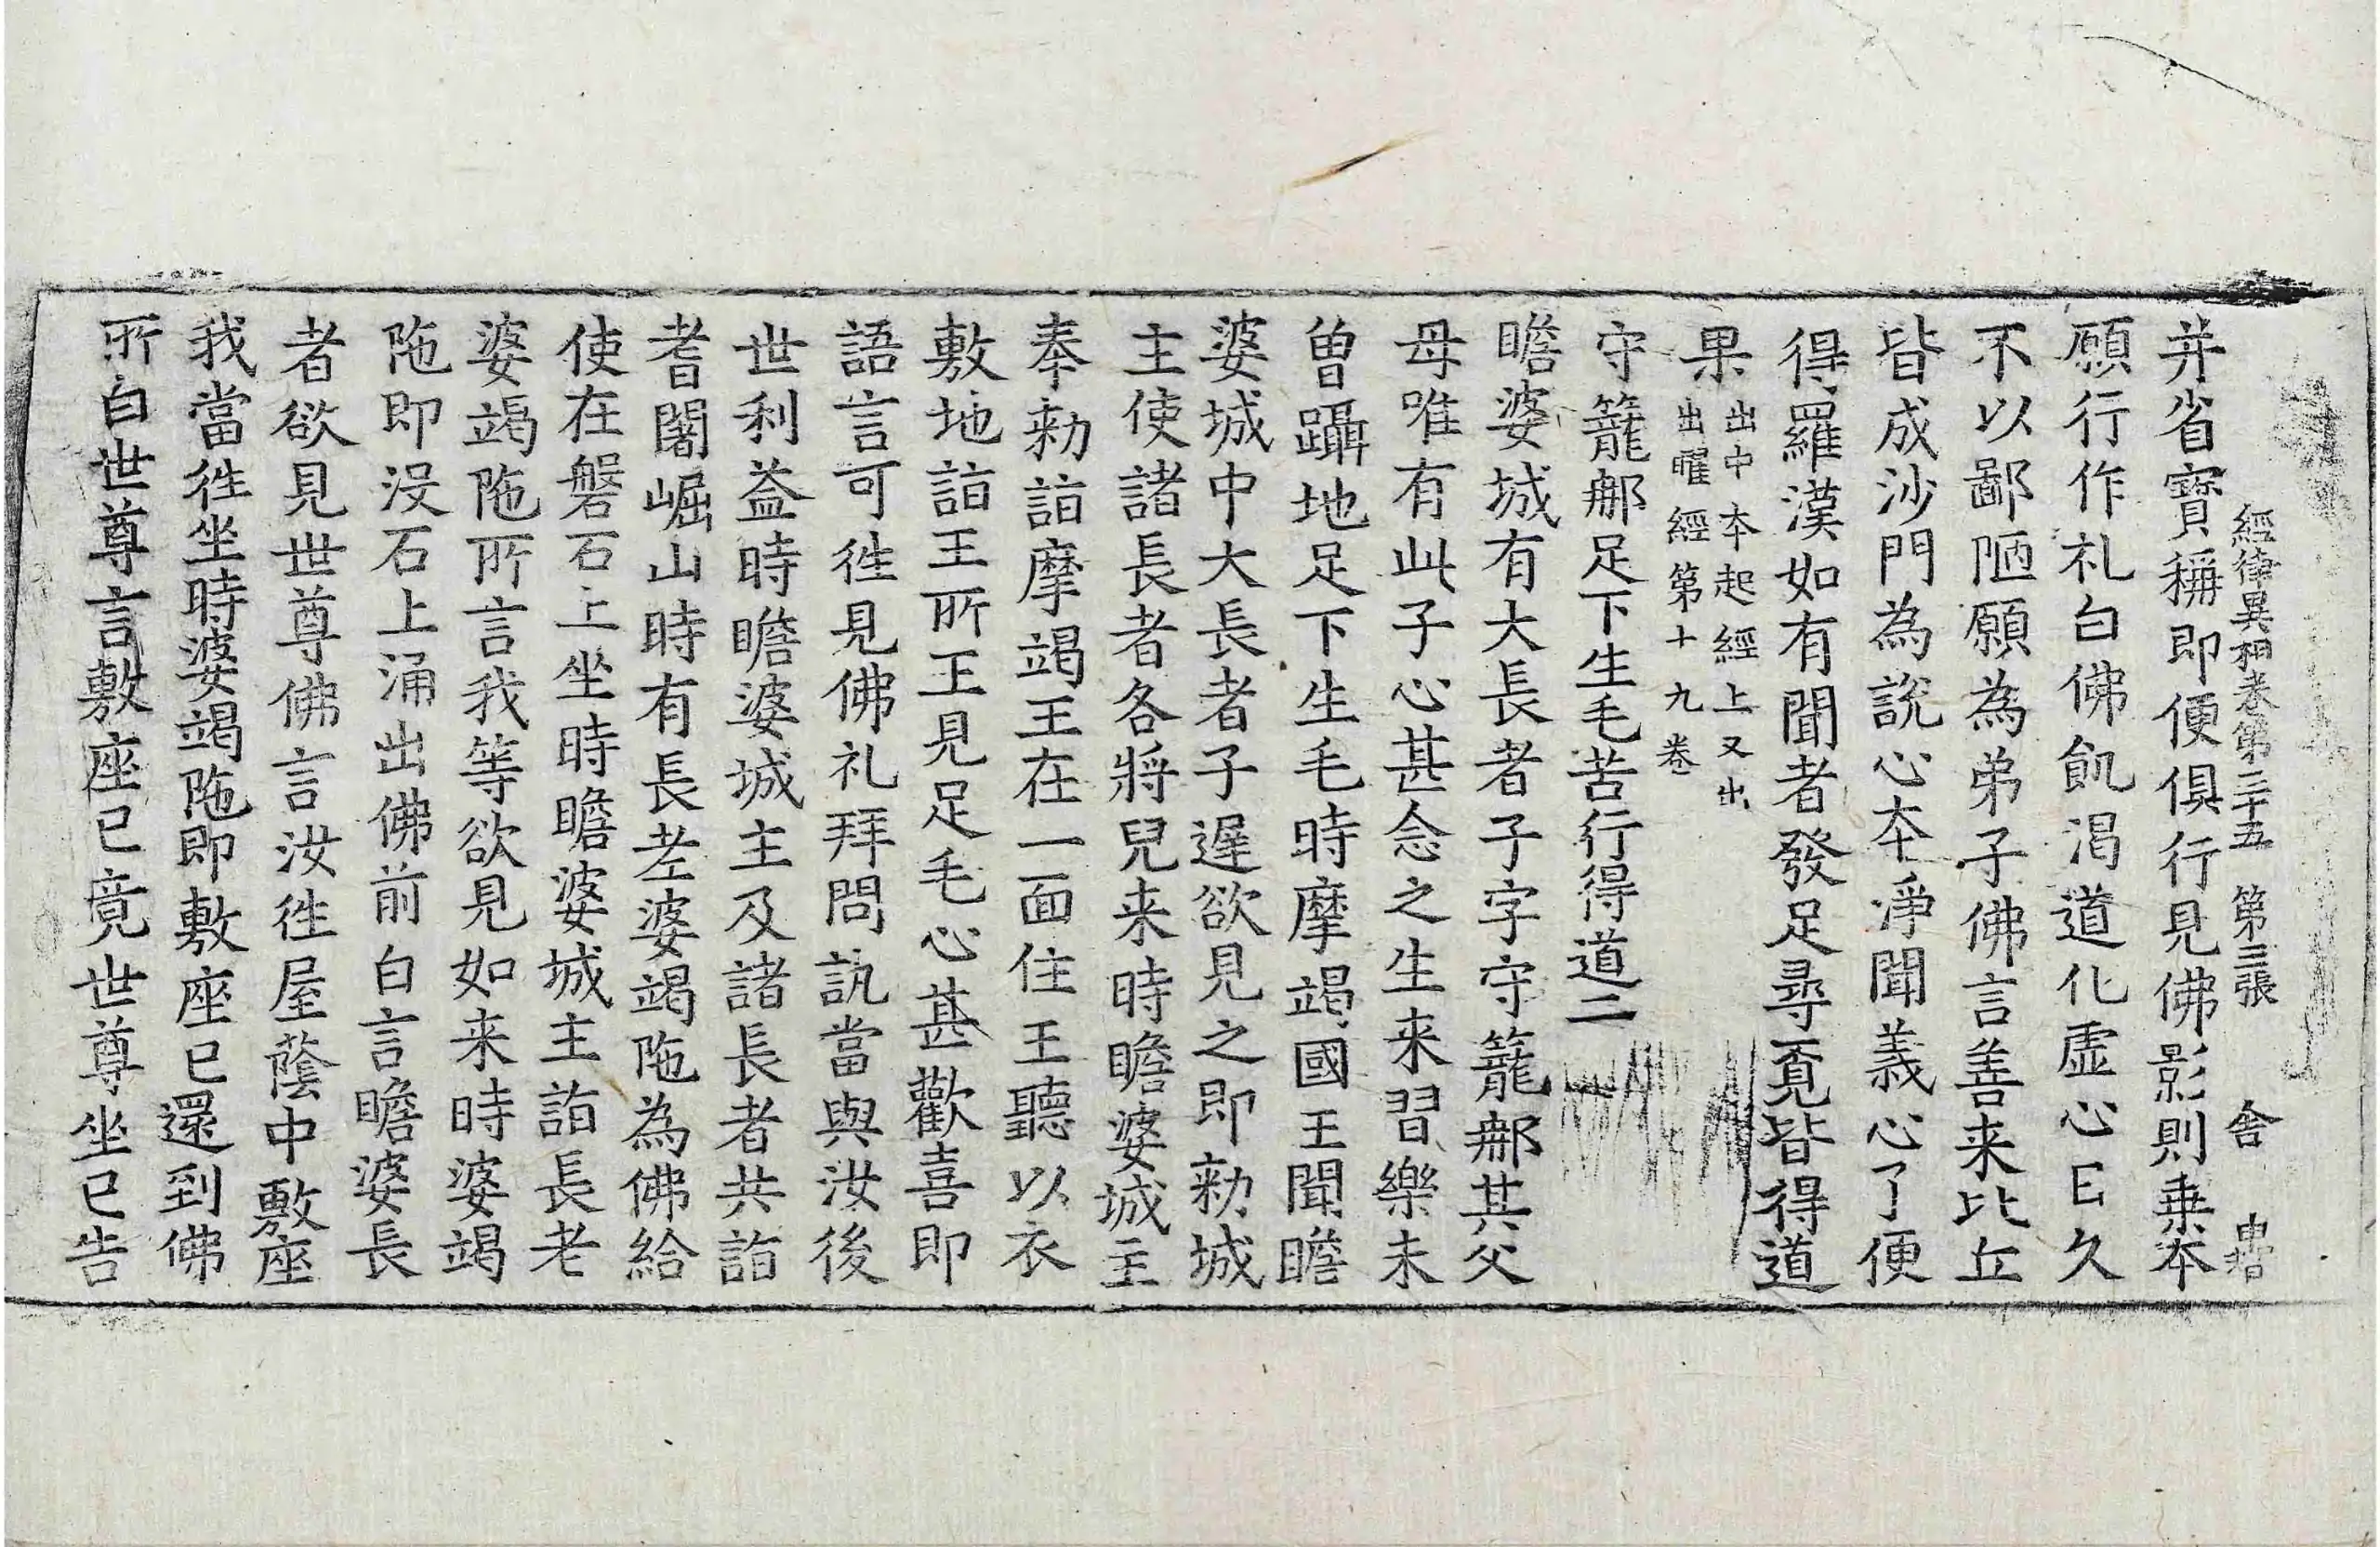 經律異相卷第三十五　第三張　舍
并省寶稱即便俱行見佛影則乗本
願行作礼白佛飢渴道化虚心日久
不以鄙陋願為弟子佛言善来比丘
皆成沙門為說心本淨聞義心了便
得羅漢如有聞者發足尋覔皆得道
果出中本起經上又出
出曜經第十九卷
守籠𨚗足下生毛苦行得道二
瞻婆城有大長者子字守籠𨚗其父
母唯有此子心甚念之生来習樂未
曽躡地足下生毛時摩竭國王聞瞻
婆城中大長者子遲欲見之即勑城
主使諸長者各將兒来時瞻婆城主
奉勑詣摩竭王在一面住王聽以衣
敷地詣王所王見足毛心甚歡喜即
語言可徃見佛礼拜問訊當與汝後
世利益時瞻婆城主及諸長者共詣
耆闍崛山時有長老婆竭陁為佛給
使在磐石上坐時瞻婆城主詣長老
婆竭陁所言我等欲見如来時婆竭
陁即没石上涌出佛前白言瞻婆長
者欲見世尊佛言汝徃屋蔭中敷座
我當徃坐時婆竭陁即敷座已還到佛
所白世尊言敷座已竟世尊坐已告